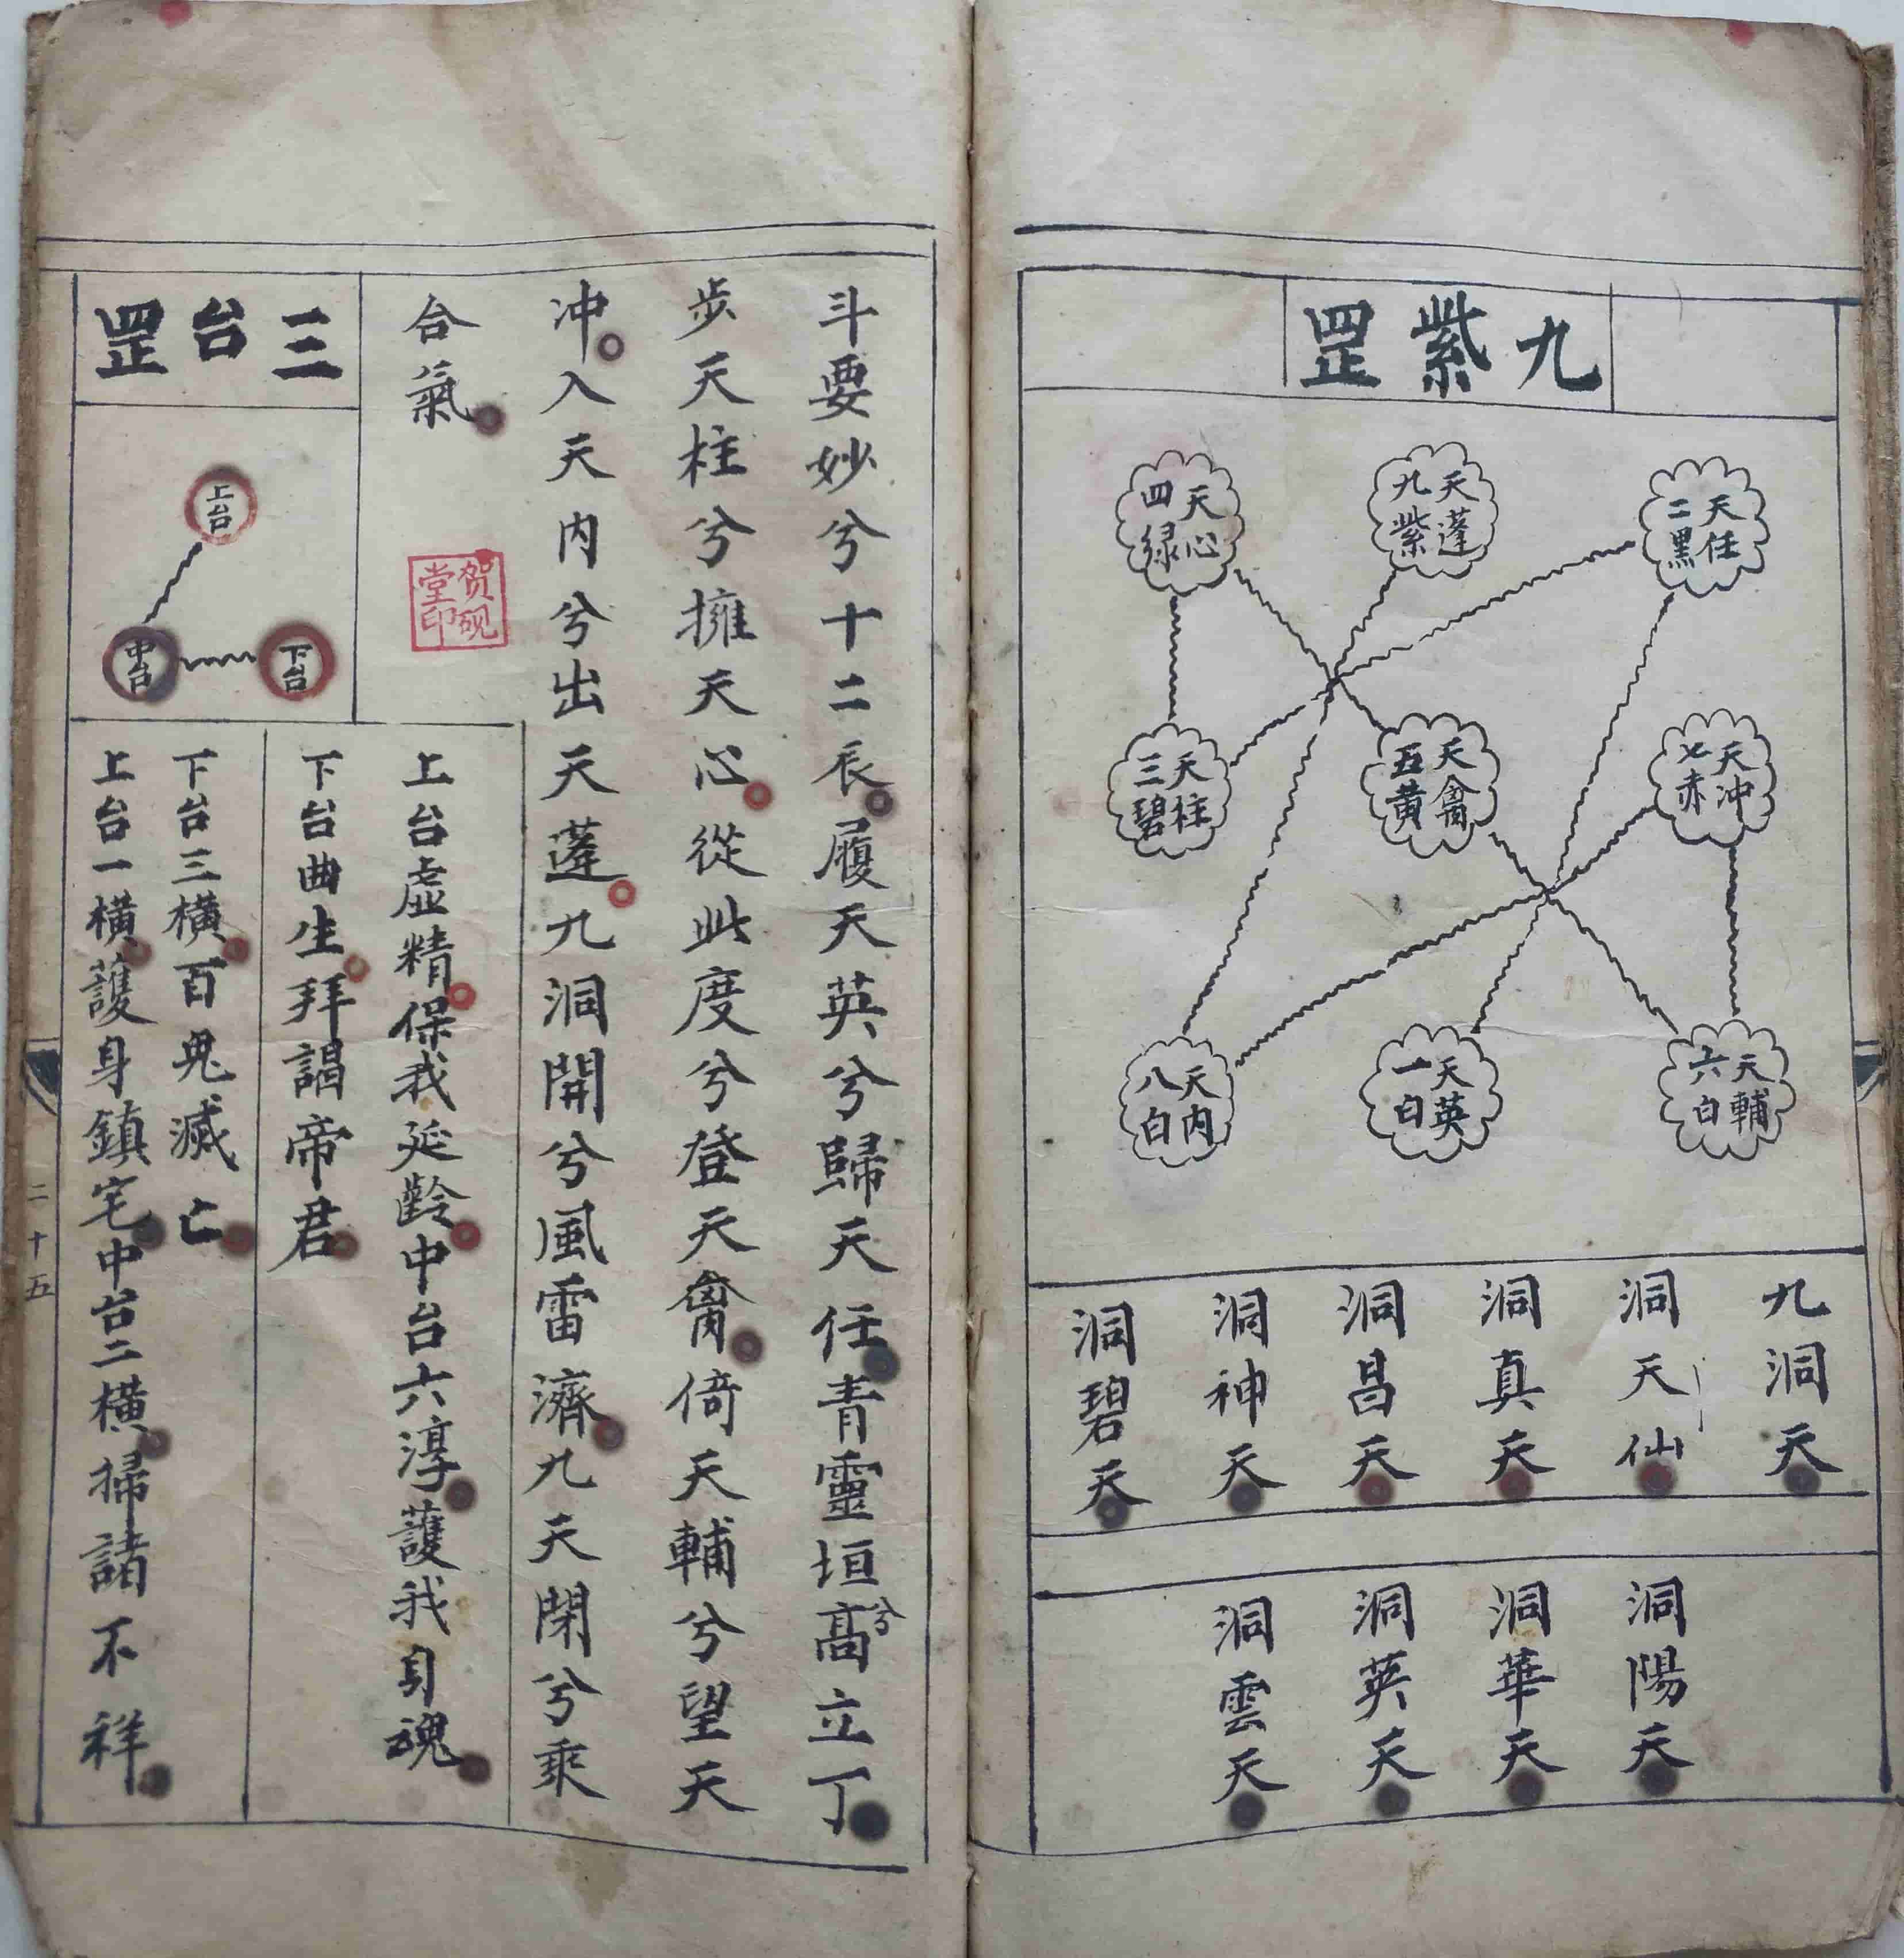 九紫罡
天任二黑
天蓬九紫
天心四绿
天冲七赤
天禽五黄
天柱三碧
天輔六白
天英一白
天内八白
九洞天
洞天仙
洞真天
洞昌天
洞神天
洞碧天
洞陽天
洞華天
洞英天
洞雲天
斗要妙兮十二辰履天英兮歸天任青靈垣兮高立丁
步天柱兮擁天心從此度兮登天禽倚天輔兮望天
冲入天内兮出天蓬九洞開兮風雷濟九天閉兮乘
合氣
贺砚堂印
三台罡
上台
中台
下台
上台虚精保我延齡中台六淳護我身魂
下台曲生拜謁帝君
下台三横百鬼滅亡
上台一横護身鎮宅中台二横掃諸不祥
二十五